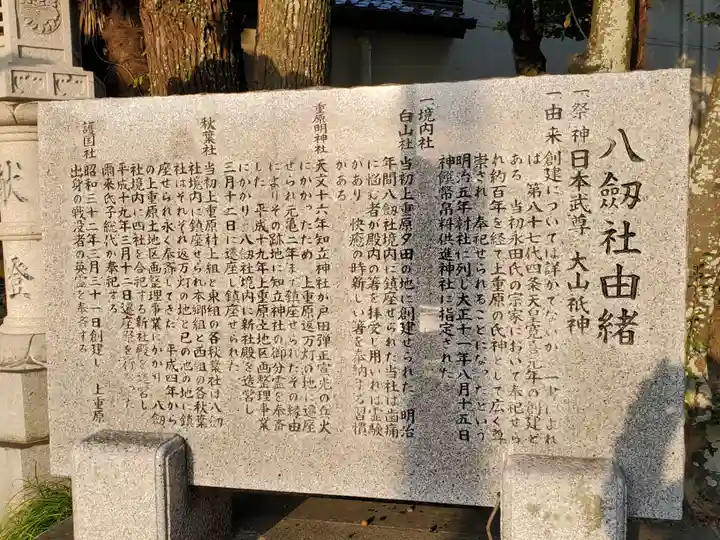 八劔社由緒
一祭神 日本武尊 大山祇神
一由来 創建については詳かでないが 一書によれ
は 第八十七代四条天皇寛元元年の創建と
ある 当初永田氏の宗家において奉祀せら
れ約百年を経て上重原の氏神として広く尊
崇され 奉祀せられることになったという
明治五年村社に列し大正十一年八月十五日
神饌幣帛料供進神社に指定された
一境内社
白山社 当初上重原夕田の地に創建せられた 明治
年間八劔社境内に鎮座せられた当社は歯痛
に悩む者が殿内の箸を拝受し用いれは霊験
かあり 快癒の時新しい箸を奉納する習慣
かある
重原明神社 天文十六年知立神社が戸田弾正宣光の兵火
にかかったため 上重原返万灯の地に遷座
せられ元亀二年まて鎮座せられたその縁由
によりその跡地に知立神社の御分霊を奉斎
した 平成十九年上重原土地区画整理事業
にかかり 八劔社境内に新社殿を造営し
三月十二日に遷座し鎮座せられた
秋葉社 当初上重原村上組と東組の各秋葉社は八劔
社境内に鎮座せられ本郷組と西組の各秋葉
社はそれそれ返万灯の地と巳の池の地に鎮
座せられ永く奉斎してきた 平成四年から
の上重原土地区画整理事業にかかり 八劔
社境内に四社を合祀する新社殿を造営し
平成十九年三月十二日遷座祭を行い
爾来氏子総代か奉祀する
護国社 昭和三十二年三月三十一日創建し 上重原
出身の戦没者の英霊を奉斎する
献
登